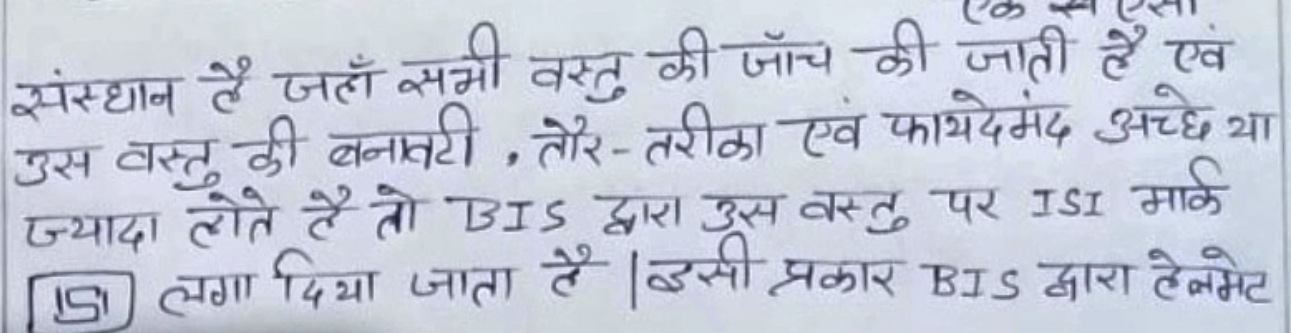 एक
संस्थान है जहाँ सभी वस्तु की जाँच की जाती है एवं
उस वस्तु की बनावटी , तौर-तरीका एवं फायदेमंद अच्छे या
ज्यादा होते है तो BIS द्वारा उस वस्तु पर ISI मार्क
ISI लगा दिया जाता है | इसी प्रकार BIS द्वारा हेलमेट